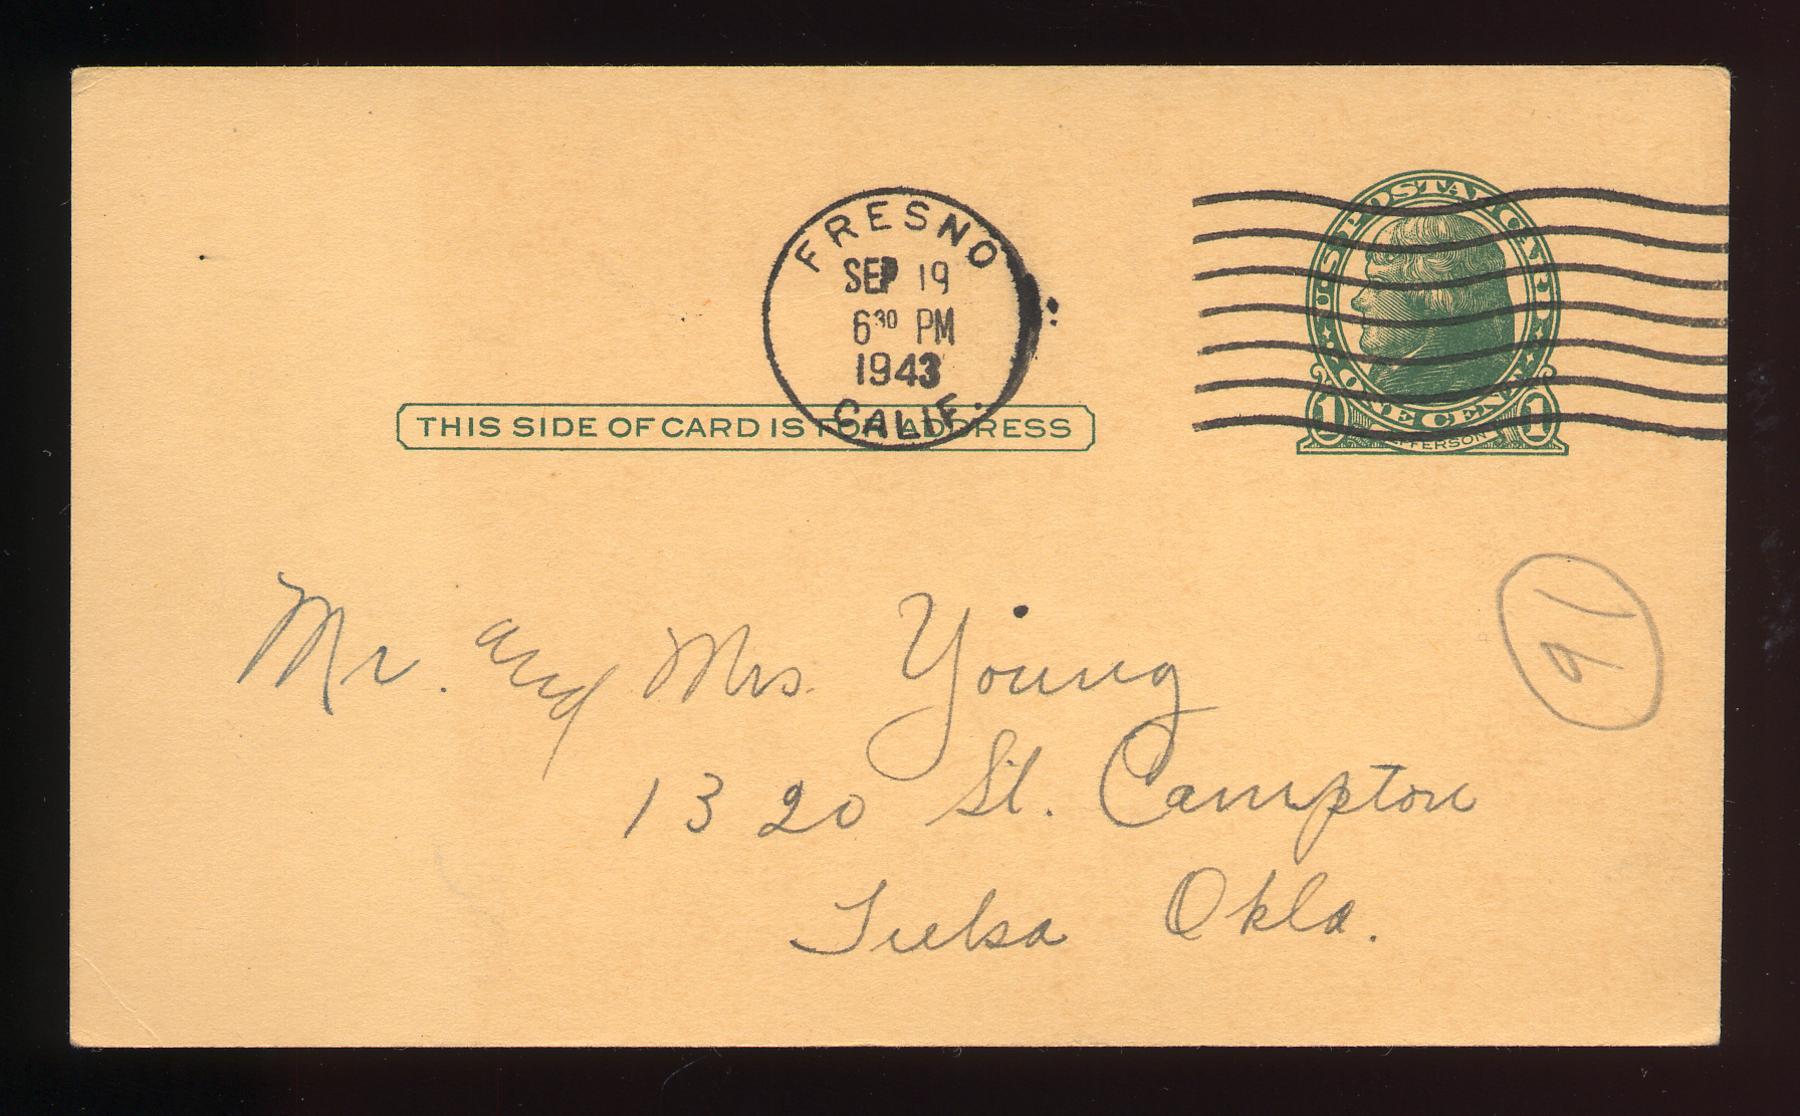 FRESNO
SEP 19
6 30 PM
1943
CALIF.
U.S. POSTAGE
ONE CENT
1 JEFFERSON 1
THIS SIDE OF CARD IS FOR ADDRESS
Mr. and Mrs. Young
1320 St. Campton
Tulsa Okla.